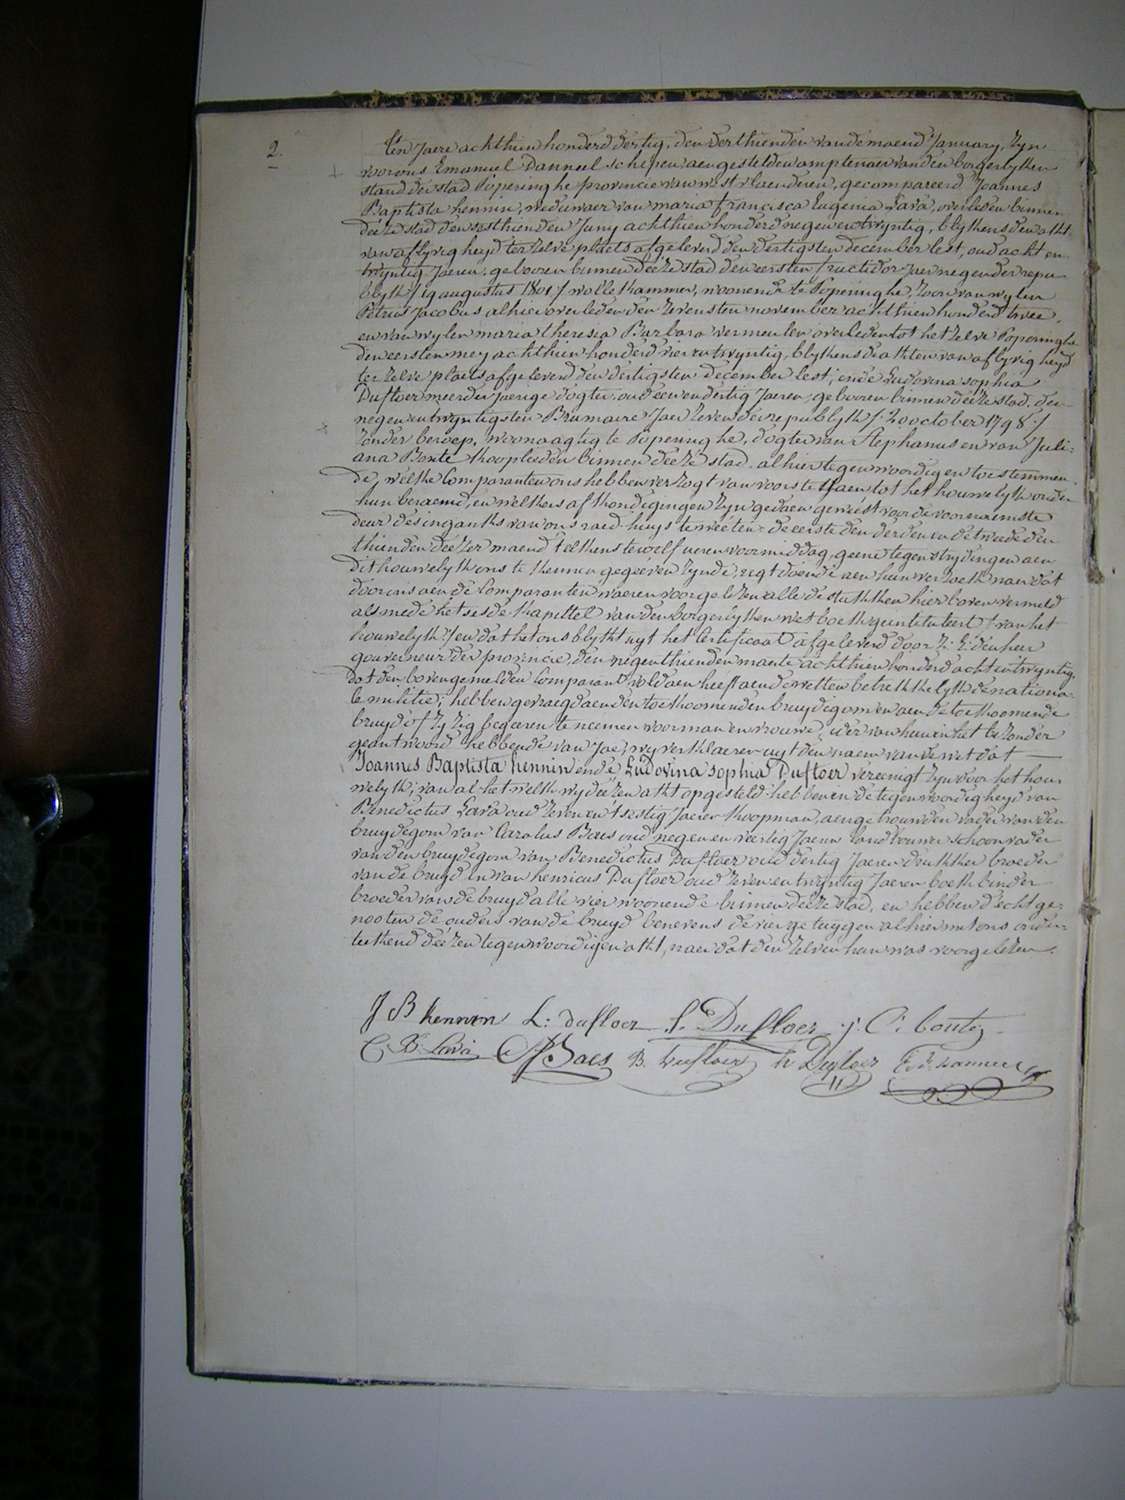 2.
In Jaere achthien honderd dertig, den derthienden van de maend January, Zyn
voor ons Emanuel Danneel schepen aengestelden amptenaer van den borgerlyken
stand der stad Poperinghe provincie van west vlaenderen, gecompareerd Joannes
Baptista hennin, weduwaer van maria francisca Eugenia Lava, overleden binnen
deeze stad den sesthienden Juny achthien honderd negen en twyntig, blykens den akt
van aflyvigheyd ter zelve plaets afgeleverd den dertigsten december lest, oud acht en
twyntig Jaeren, gebooren binnen deeze stad den eersten fructidor Jaer negen der repu
blyk /19 augustus 1801/ wollekammer, woonende te Poperinghe, Zoon van wylen
Petrus Jacobus alhier overleden den zevensten november achthien honderd twee,
en van wylen maria theresia Barbara vermeulen overleden tot het zelve Poperinghe
den eersten mey achthien honderd vier en twyntig, blykens de akten van aflyvigheyd
ter zelve plaets afgeleverd den dertigsten december lest; ende Ludovina sophia
Dufloer meerderjaerige dogter, oud een en dertig Jaeren, gebooren binnen deeze stad, den
negen en twyntigsten Brumaire Jaer zeven der republyk /: 20 october 1798 :/
zonder beroep, woonagtig te Poperinghe, dogter van Stephanus en van Juli-
ana Bonte kooplieden binnen deeze stad alhier tegenwoordig en toestemmen
de, welke Comparanten ons hebben verzogt van voorts te gaen tot het houwelyk onder
hun beraemd, en welkers afkondigingen zyn gedaen geweest voor de voornaemste
deur des ingangks van ons raed-huys te weeten de eerste den derden en de tweede den
thienden deezer maend telkens te twelf ueren voormiddag, geene tegenstrydingen aen
dit houwelyk ons te kennen gegeeven zynde, regt doende aen hun verzoek naer dat
door ons aen de Comparanten waeren voorgelezen alle de stukken hier boven vermeld
als mede het sesde kapittel van den borgerlyken wet boek geintituleert /van het
houwelyk/ en dat het ons blykt uyt het Certificaet afgeleverd door Z: E: den heer
gouverneur der provincie, den negenthienden maerte achthien honderd acht en twyntig,
dat den bovengemelden Comparant voldaen heeft aen de wetten betrekkelyk de nationa-
le militie; hebben gevraegd aen den toekoomenden bruydegom en aen de toekoomende
bruyd of zy zig begeeren te neemen voor man en vrouwe, ider van hun en het byzonder
geantwoord hebbende van Jae, wy verklaeren uyt den naem van de wet dat
Joannes Baptista hennin ende Ludovina sophia Dufloer vereenigt zyn door het hou-
welyk; van al het welk wy deezen akt opgesteld hebben in de tegenwoordigheyd van
Benedictus Lava oud zeven en t'sestig Jaeren koopman, aengehouwden vader van den
bruydegom van Carolus Baes oud negen en veertig Jaeren landbouwer schoonvader
van den bruydegom van Benedictus Dufloer oud dertig Jaeren drukker broeder
van de bruyd en van henricus Dufloer oud zeven en twyntig Jaeren boekbinder
broeder van de bruyd alle vier woonende binnen deeze stad, en hebben d'echtge-
nooten de ouders van de bruyd benevens de vier getuygen alhier met ons onder-
teekend deezen tegenwoordigen akt, naer dat den zelven hun was voorgelezen.
J B hennin L: dufloer S. Dufloer j: C: bonte
C B: Lava C Baes B. Dufloer h Dufloer E J. Danneel